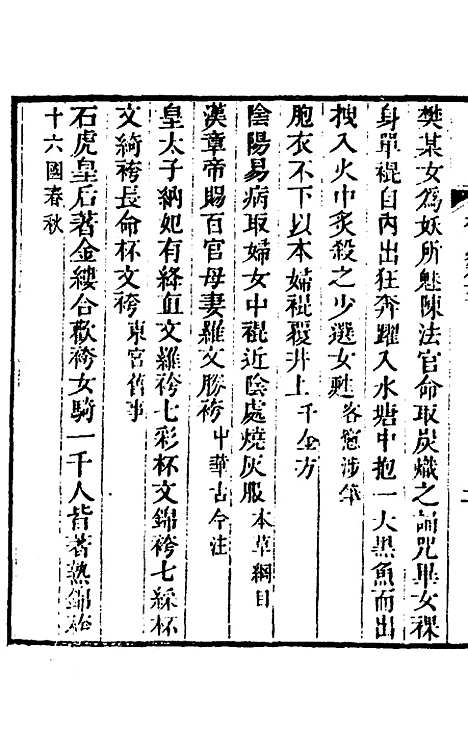 樊某女為妖所魅陳法官命取炭熾之誦咒畢女裸
身單裩自內出狂奔躍入水塘中抱一大黑魚而出
拽入火中炙殺之少選女甦客窻涉筆
胞衣不下以本婦裩覆井上千金方
陰陽易病取婦女中裩近陰處燒灰服本草綱目
漢章帝賜百官母妻羅文勝袴中華古今注
皇太子納妃有絳直文羅袴七彩杯文錦袴七綵杯
文綺袴長命杯文袴東宮舊事
石虎皇后著金縷合歡袴女騎一千人皆著熟錦袴
十六國春秋